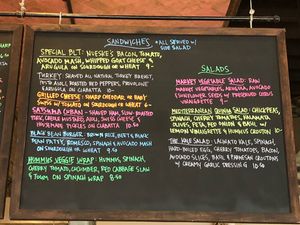 SANDWICHES
*ALL SERVED W/
SIDE SALAD
SPECIAL BLT: NUESKE'S BACON, TOMATO,
AVOCADO MASH, WHIPPED GOAT CHEESE &
ARUGULA ON SOURDOUGH OR WHEAT 9-
TURKEY: SHAVED ALL NATURAL TURKEY BREAST,
PESTO AIOLI, ROASTED RED PEPPERS, PROVOLONE
ARUGULA ON CIABATTA 10-
GRILLED CHEESE: SHARP CHEDDAR, OR HAVARTI
SWISS W/ TOMATO ON SOURDOUGH OR WHEAT 6-
CUBAN: SHAVED HAM, SLOW ROASTED
PORK, CREOLE MUSTARD, AIOLI, SWISS CHEESE &
HOUSEMADE PICKLES ON CIABATTA 10.50
BLACK BEAN BURGER: BROWN RICE, BEET & BLACK
BEAN PATTY, ROMESCO, SPINACH & AVOCADO MASH
ON SOURDOUGH OR WHEAT 9.50
HUMMUS VEGGIE WRAP: HUMMUS, SPINACH,
CHERRY TOMATO, CUCUMBER, RED CABBAGE SLAW
ON SPINACH WRAP 8.50
SALADS
MARKET VEGETABLE SALAD: RAW
MARKET VEGETABLES, ARUGULA, AVOCADO
SUNFLOWER SEEDS W/ PRESERVED LEMON
VINAIGRETTE 9-
MEDITERRANEAN QUINOA SALAD: CHICKPEAS,
SPINACH, CHERRY TOMATOES, KALAMATA
OLIVES, FETA, RED ONION & BASIL W/
LEMON VINAIGRETTE & HUMMUS CROUTON 10-
THE YALE SALAD: LACINATO KALE, SPINACH,
HARD-BOILED EGG, CHERRY TOMATOES, BACON,
AVOCADO SLICES, BASIL & PARMESAN CROUTONS
W/ CREAMY GARLIC DRESSING 10.50